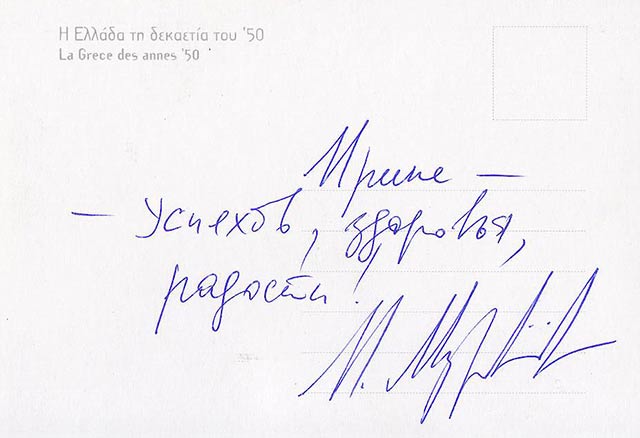 Η Ελλάδα τη δεκαετία του '50
La Grece des annes '50
Ирине —
— Успехов, здоровья,
радости!
И.